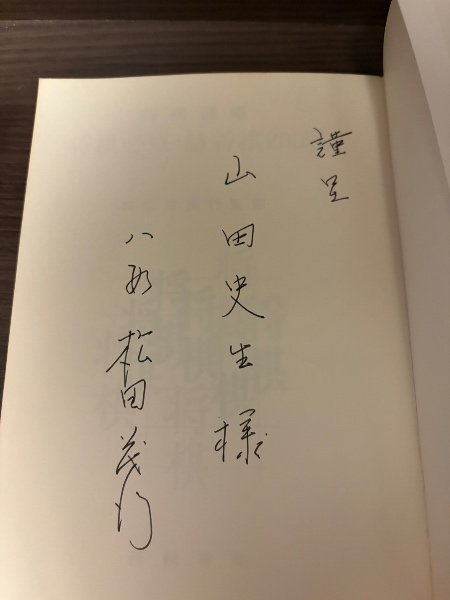 謹呈
山田史生様
八段 松田茂行